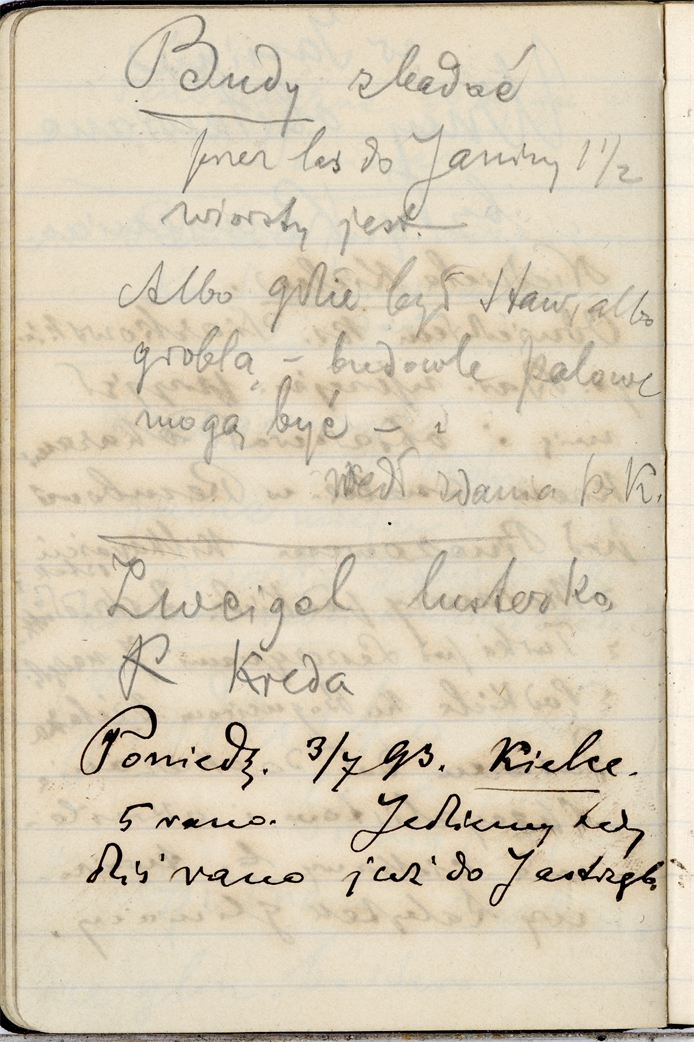 Budy zbadać
przez las do Janiny 1 1/2
wiorsty jest —
Albo gdzie był staw, albo
grobla, – budowle palowe
mogą być –
wedł zdania p. K.
Zweigel lusterka
R Kreda
Poniedz. 3/7 93. Kielce.
5 rano. Jedziemy tedy
dziś rano już do Jastrzęb.